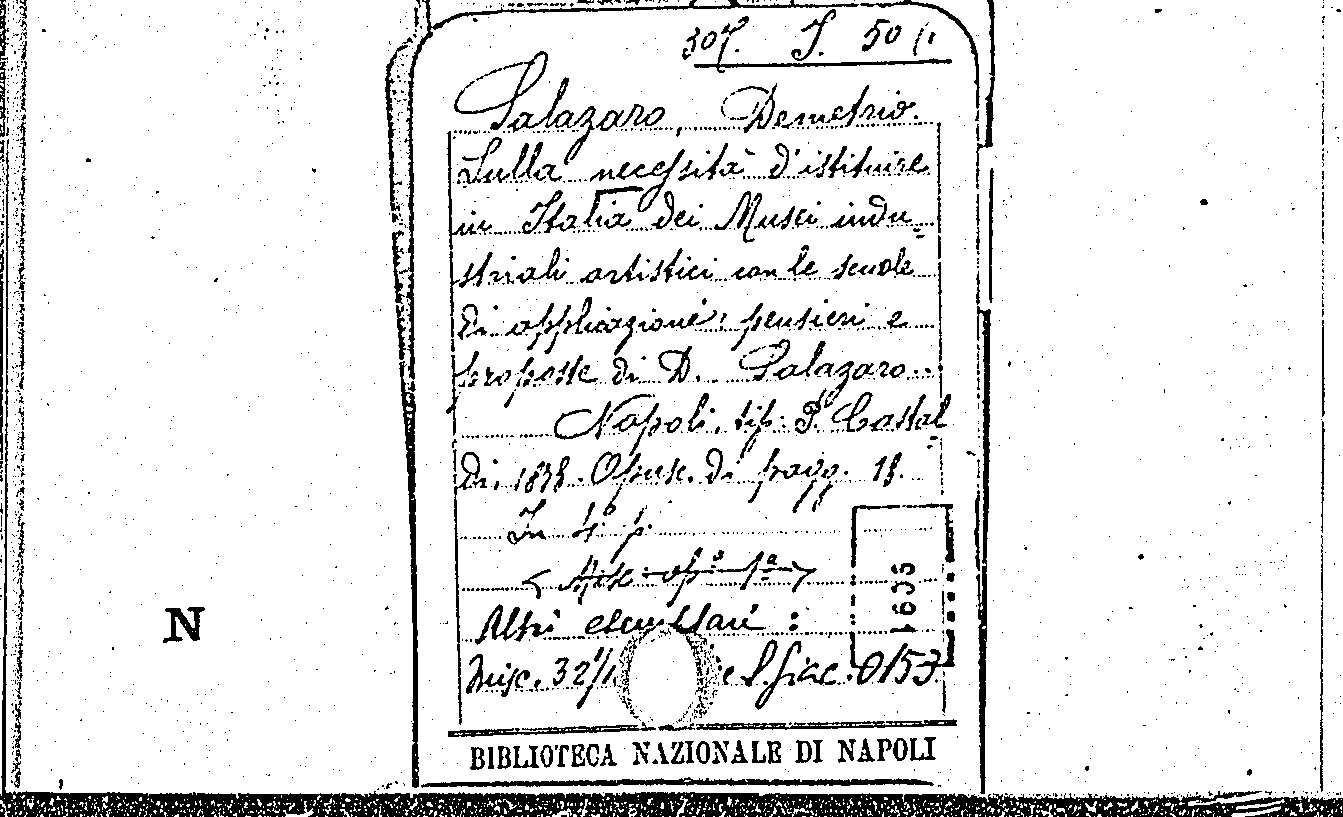 307. J. 50 (1
Salazaro, Demetrio.
Sulla necessità d'istituire
in Italia dei Musei indu-
striali artistici con le scuole
di applicazione: pensieri e
proposte di D. Salazaro.
Napoli, tip. P. Castal-
di, 1878. Opusc. di pagg. 18.
In 4° p.
Altri esemplari:
Misc. 32/1 0153
1635
N
BIBLIOTECA NAZIONALE DI NAPOLI